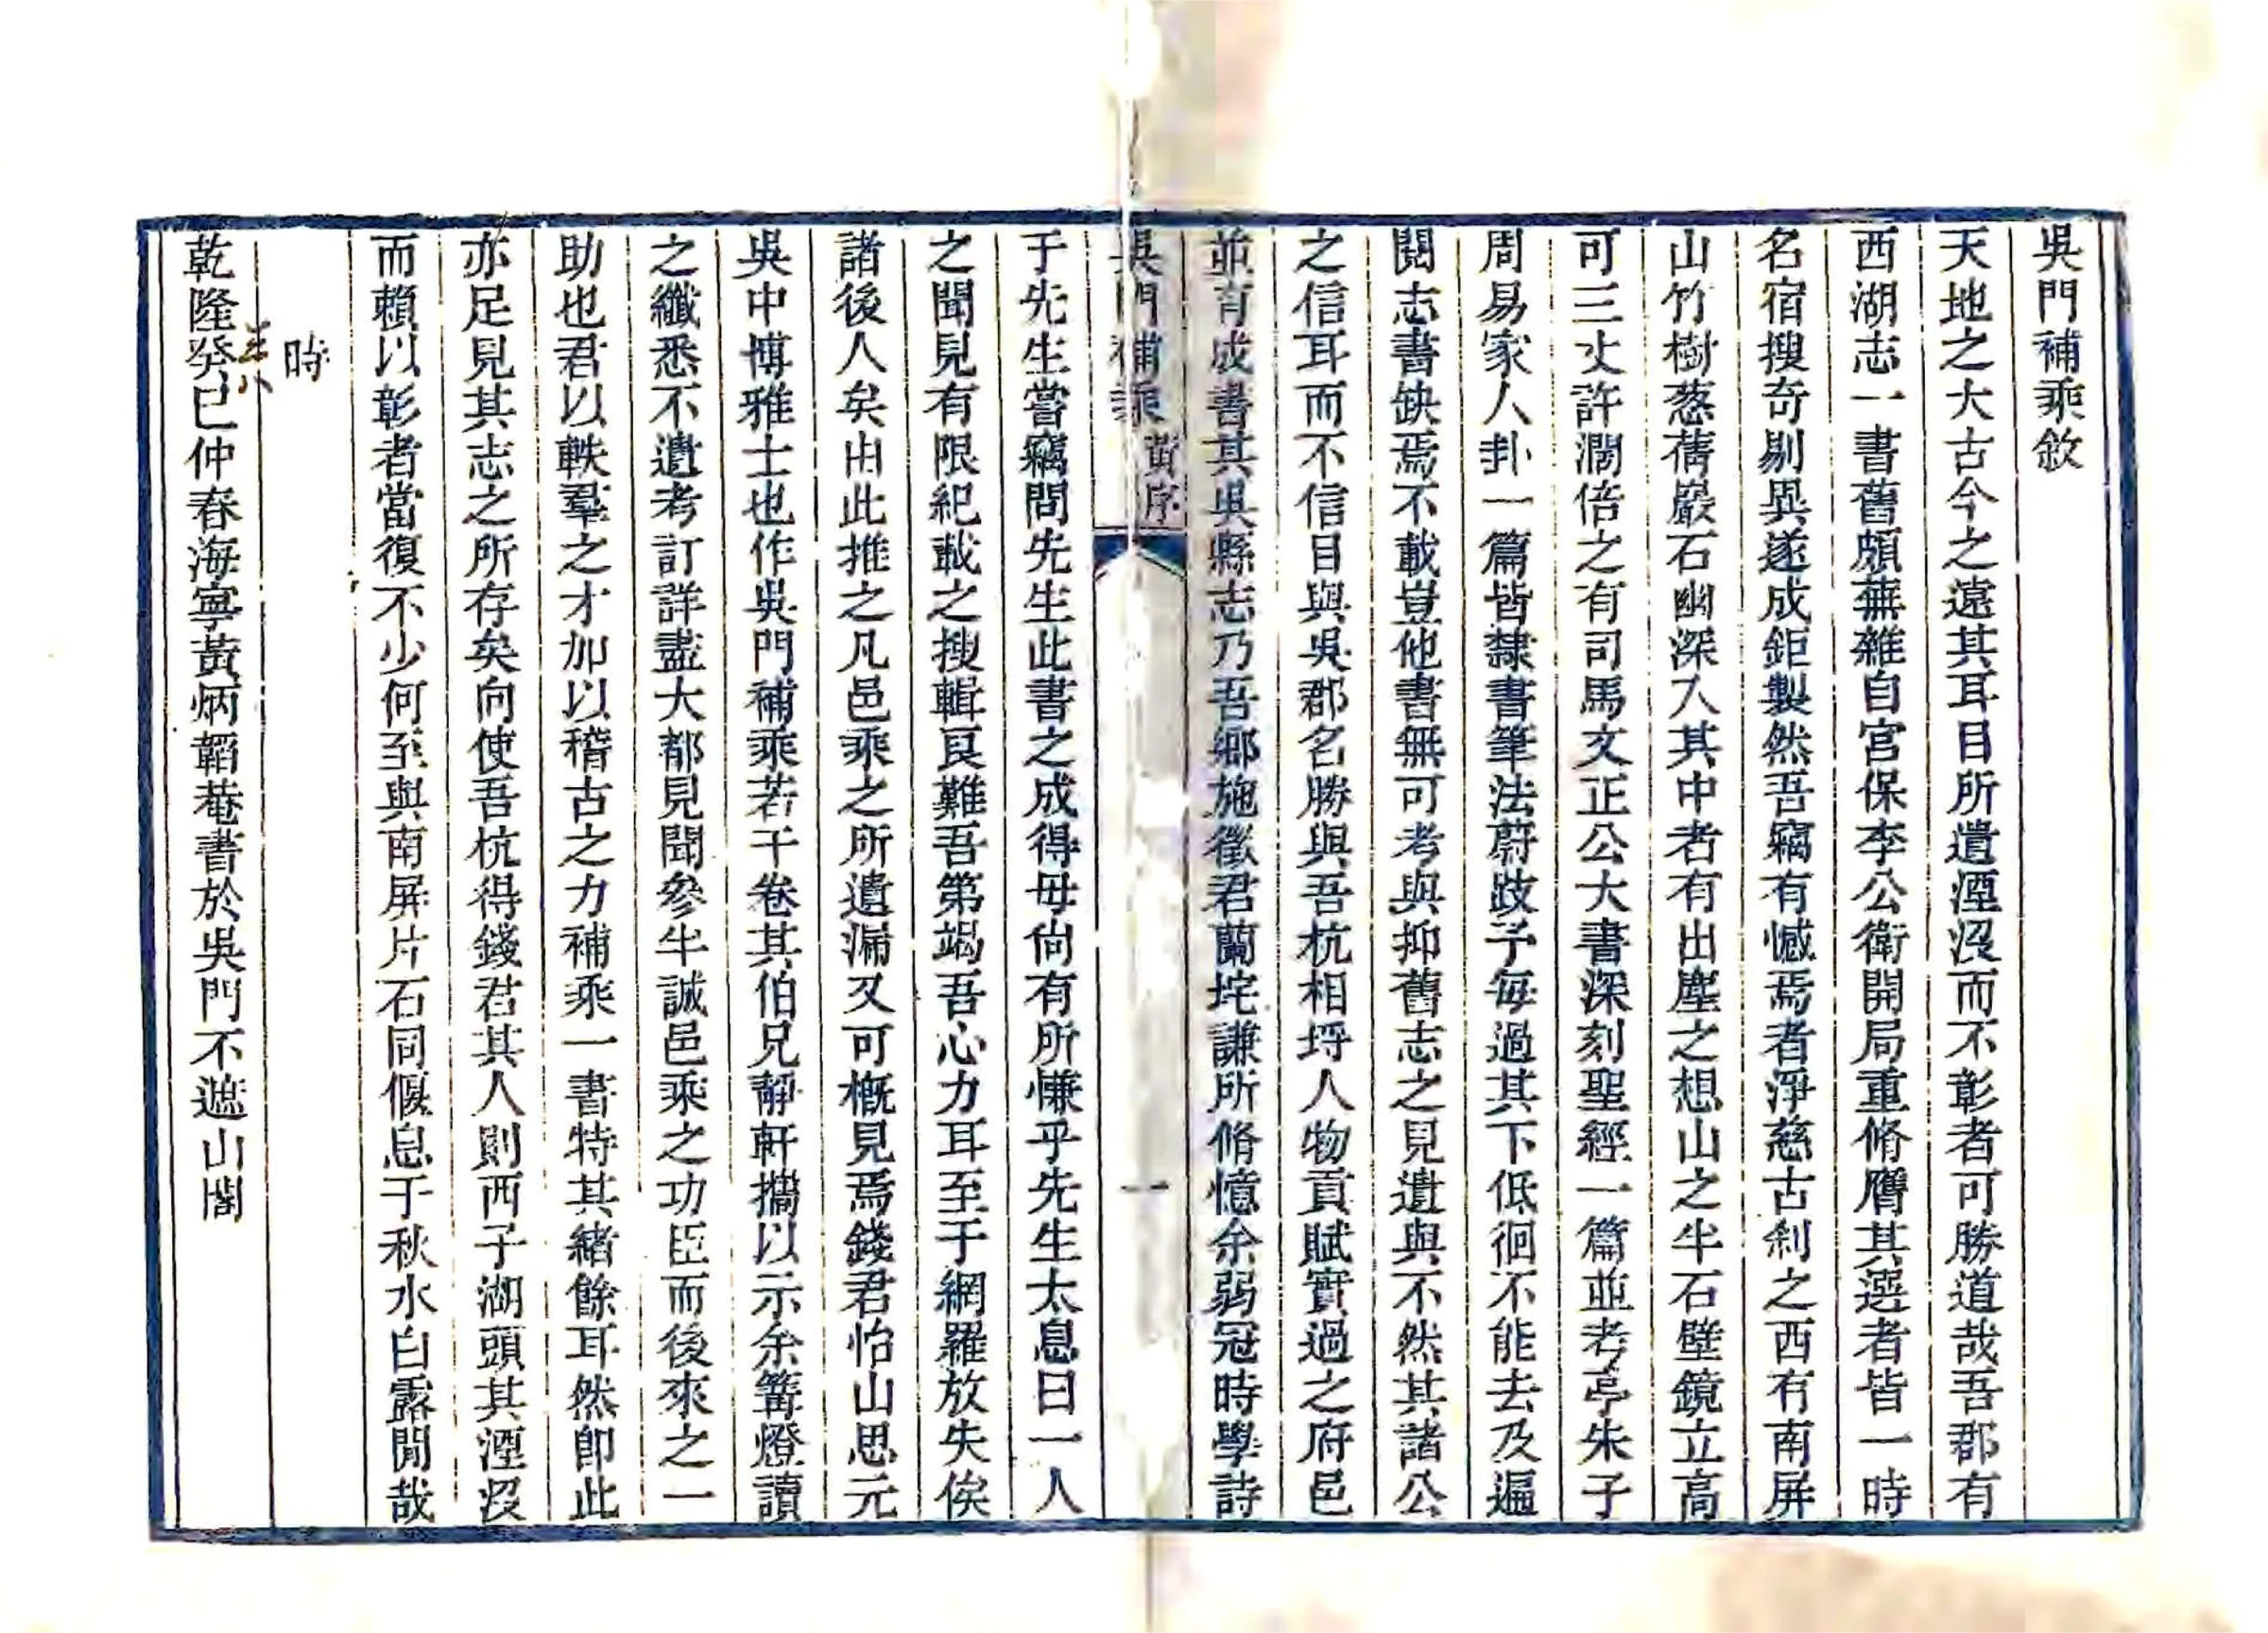 吳門補乘敘
天地之大古今之遠其耳目所遺湮沒而不彰者可勝道哉吾郡有
西湖志一書舊頗蕪雜自宮保李公衛開局重脩膺其選者皆一時
名宿搜奇剔異遂成鉅製然吾竊有憾焉者淨慈古剎之西有南屏
山竹樹葱蒨巖石幽深入其中者有出塵之想山之半石壁鏡立高
可三丈許濶倍之有司馬文正公大書深刻聖經一篇並考亭朱子
周易家人卦一篇皆隸書筆法蔚跂予每過其下低徊不能去及遍
閱志書缺焉不載豈他書無可考與抑舊志之見遺與不然其諸公
之信耳而不信目與吳郡名勝與吾杭相埒人物貢賦實過之府邑
並有成書其吳縣志乃吾鄉施徵君蘭垞謙所脩憶余弱冠時學詩
吳門補乘 黃序 一
于先生嘗竊問先生此書之成得毋尚有所慊乎先生太息曰一人
之聞見有限紀載之搜輯艮難吾第竭吾心力耳至于網羅放失俟
諸後人矣由此推之凡邑乘之所遺漏又可槪見焉錢君怡山思元
吳中博雅士也作吳門補乘若干卷其伯兄靜軒攜以示余篝燈讀
之纖悉不遺考訂詳盡大都見聞參半誠邑乘之功臣而後來之一
助也君以軼羣之才加以稽古之力補乘一書特其緒餘耳然卽此
亦足見其志之所存矣向使吾杭得錢君其人則西子湖頭其湮沒
而賴以彰者當復不少何至與南屏片石同偃息于秋水白露閒哉
時
乾隆癸巳仲春海寧黃炳韜菴書於吳門不遮山閣